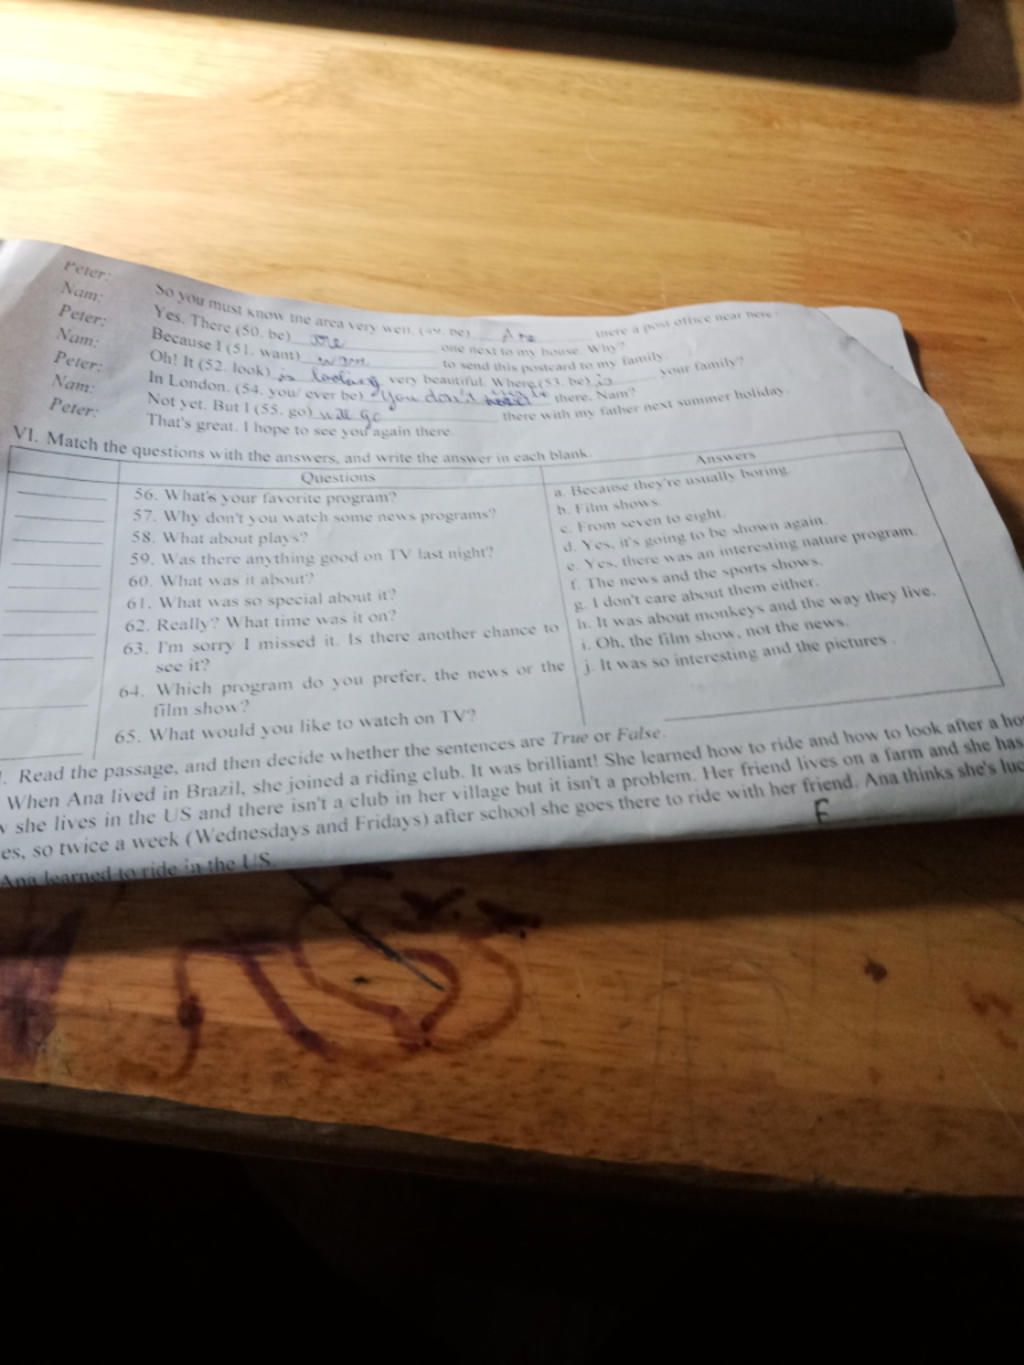 Peter: So you must know the area very well. (49. be) Are there a post office near here?
Nam: Yes. There (50. be) are one next to my house. Why?
Peter: Because I (51. want) want to send this postcard to my family.
Nam: Oh! It (52. look) is looking very beautiful. Where (53. be) is your family?
Peter: In London. (54. you/ ever be) you don't there. Nam?
Nam: Not yet. But I (55. go) will go there with my father next summer holiday.
Peter: That's great. I hope to see you again there.
VI. Match the questions with the answers, and write the answer in each blank.
Questions Answers
56. What's your favorite program? a. Because they're usually boring.
57. Why don't you watch some news programs? b. Film shows.
58. What about plays? c. From seven to eight.
59. Was there anything good on TV last night? d. Yes, it's going to be shown again.
60. What was it about? e. Yes, there was an interesting nature program.
61. What was so special about it? f. The news and the sports shows.
62. Really? What time was it on? g. I don't care about them either.
63. I'm sorry I missed it. Is there another chance to h. It was about monkeys and the way they live.
see it? i. Oh, the film show, not the news.
64. Which program do you prefer, the news or the j. It was so interesting and the pictures .
film show?
65. What would you like to watch on TV?
. Read the passage, and then decide whether the sentences are True or False.
When Ana lived in Brazil, she joined a riding club. It was brilliant! She learned how to ride and how to look after a
she lives in the US and there isn't a club in her village but it isn't a problem. Her friend lives on a farm and she has
es, so twice a week (Wednesdays and Fridays) after school she goes there to ride with her friend. Ana thinks she's
F
Ana learned to ride in the US.